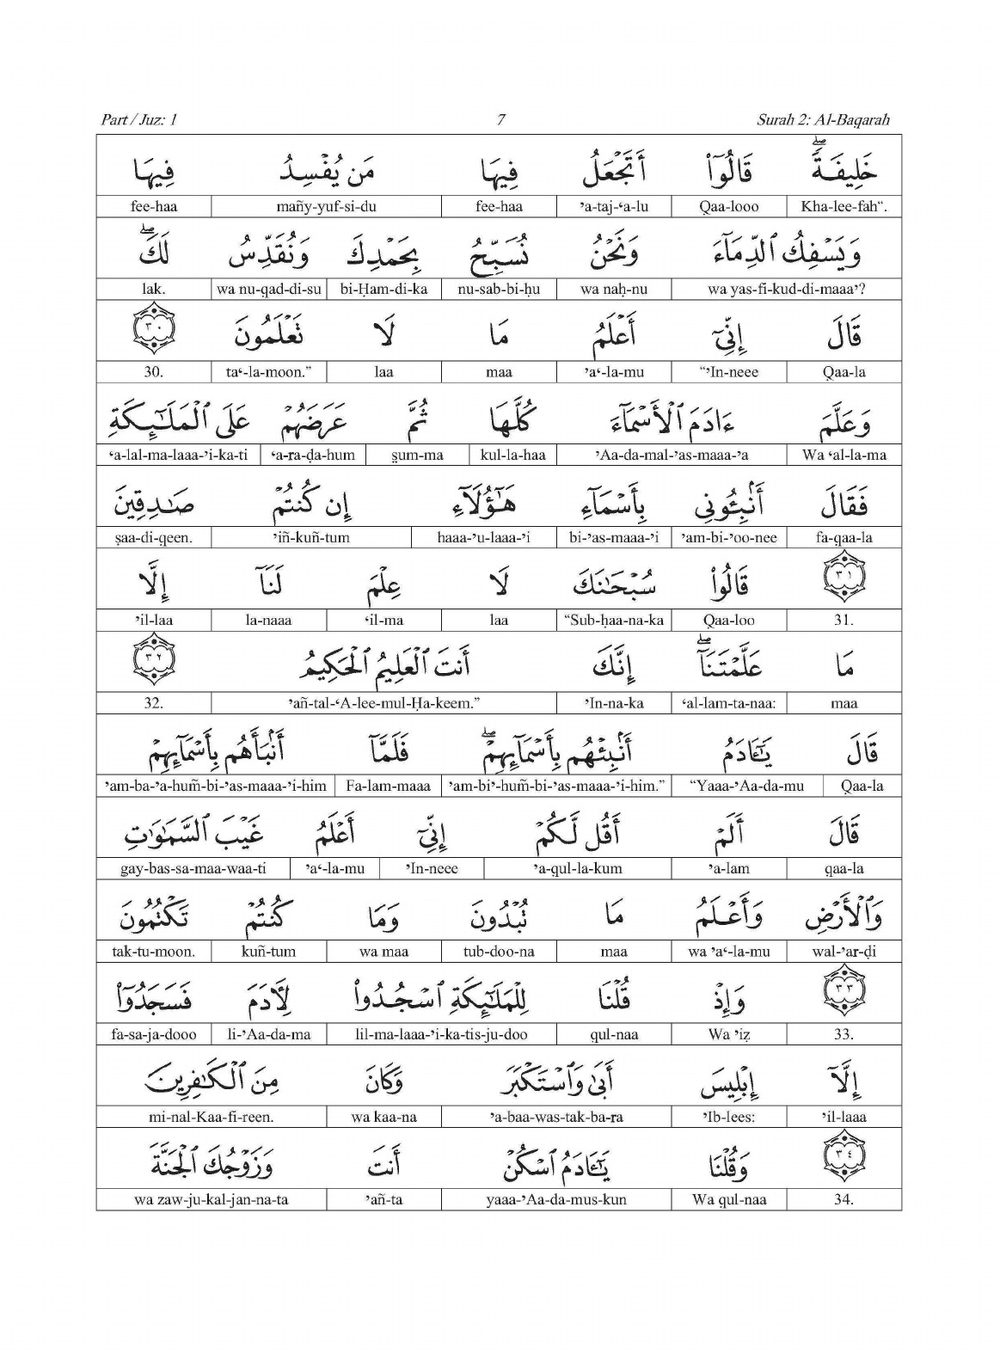 Part / Juz: 1 7 Surah 2: Al-Baqarah
خَلِيفَةًۖ قَالُوٓا۟ أَتَجْعَلُ فِيهَا مَن يُفْسِدُ فِيهَا
Kha-lee-fah“. Qaa-looo ’a-taj-‘a-lu fee-haa mañy-yuf-si-du fee-haa
وَيَسْفِكُ ٱلدِّمَآءَ وَنَحْنُ نُسَبِّحُ بِحَمْدِكَ وَنُقَدِّسُ لَكَۖ
wa yas-fi-kud-di-maaa’? wa naḥ-nu nu-sab-bi-ḥu bi-Ḥam-di-ka wa nu-qad-di-su lak.
قَالَ إِنِّىٓ أَعْلَمُ مَا لَا تَعْلَمُونَ ٣٠
Qaa-la “’In-neee ’a‘-la-mu maa laa ta‘-la-moon.” 30.
وَعَلَّمَ ءَادَمَ ٱلْأَسْمَآءَ كُلَّهَا ثُمَّ عَرَضَهُمْ عَلَى ٱلْمَلَـٰٓئِكَةِ
Wa ‘al-la-ma ’Aa-da-mal-’as-maaa-’a kul-la-haa s̱um-ma ‘a-ra-ḍa-hum ‘a-lal-ma-laaa-’i-ka-ti
فَقَالَ أَنۢبِـُٔونِى بِأَسْمَآءِ هَـٰٓؤُلَآءِ إِن كُنتُمْ صَـٰدِقِينَ
fa-qaa-la ’am-bi-’oo-nee bi-’as-maaa-’i haaa-’u-laaa-’i ’iñ-kuñ-tum ṣaa-di-qeen.
٣١ قَالُوا۟ سُبْحَـٰنَكَ لَا عِلْمَ لَنَآ إِلَّا
31. Qaa-loo “Sub-ḥaa-na-ka laa ‘il-ma la-naaa ’il-laa
مَا عَلَّمْتَنَآۖ إِنَّكَ أَنتَ ٱلْعَلِيمُ ٱلْحَكِيمُ ٣٢
maa ‘al-lam-ta-naa: ’In-na-ka ’añ-tal-‘A-lee-mul-Ḥa-keem.” 32.
قَالَ يَـٰٓـَٔادَمُ أَنۢبِئْهُم بِأَسْمَآئِهِمْۖ فَلَمَّآ أَنۢبَأَهُم بِأَسْمَآئِهِمْ
Qaa-la “Yaaa-’Aa-da-mu ’am-bi’-hum̃-bi-’as-maaa-’i-him.” Fa-lam-maaa ’am-ba-’a-hum̃-bi-’as-maaa-’i-him
قَالَ أَلَمْ أَقُل لَّكُمْ إِنِّىٓ أَعْلَمُ غَيْبَ ٱلسَّمَـٰوَٰتِ
qaa-la ’a-lam ’a-qul-la-kum ’In-neee ’a‘-la-mu gay-bas-sa-maa-waa-ti
وَٱلْأَرْضِ وَأَعْلَمُ مَا تُبْدُونَ وَمَا كُنتُمْ تَكْتُمُونَ
wal-’ar-ḍi wa ’a‘-la-mu maa tub-doo-na wa maa kuñ-tum tak-tu-moon.
٣٣ وَإِذْ قُلْنَا لِلْمَلَـٰٓئِكَةِ ٱسْجُدُوا۟ لِـَٔادَمَ فَسَجَدُوٓا۟
33. Wa ’iẕ qul-naa lil-ma-laaa-’i-ka-tis-ju-doo li-’Aa-da-ma fa-sa-ja-dooo
إِلَّآ إِبْلِيسَ أَبَىٰ وَٱسْتَكْبَرَ وَكَانَ مِنَ ٱلْكَـٰفِرِينَ
’il-laaa ’Ib-lees: ’a-baa-was-tak-ba-ra wa kaa-na mi-nal-Kaa-fi-reen.
٣٤ وَقُلْنَا يَـٰٓـَٔادَمُ ٱسْكُنْ أَنتَ وَزَوْجُكَ ٱلْجَنَّةَ
34. Wa qul-naa yaaa-’Aa-da-mus-kun ’añ-ta wa zaw-ju-kal-jan-na-ta